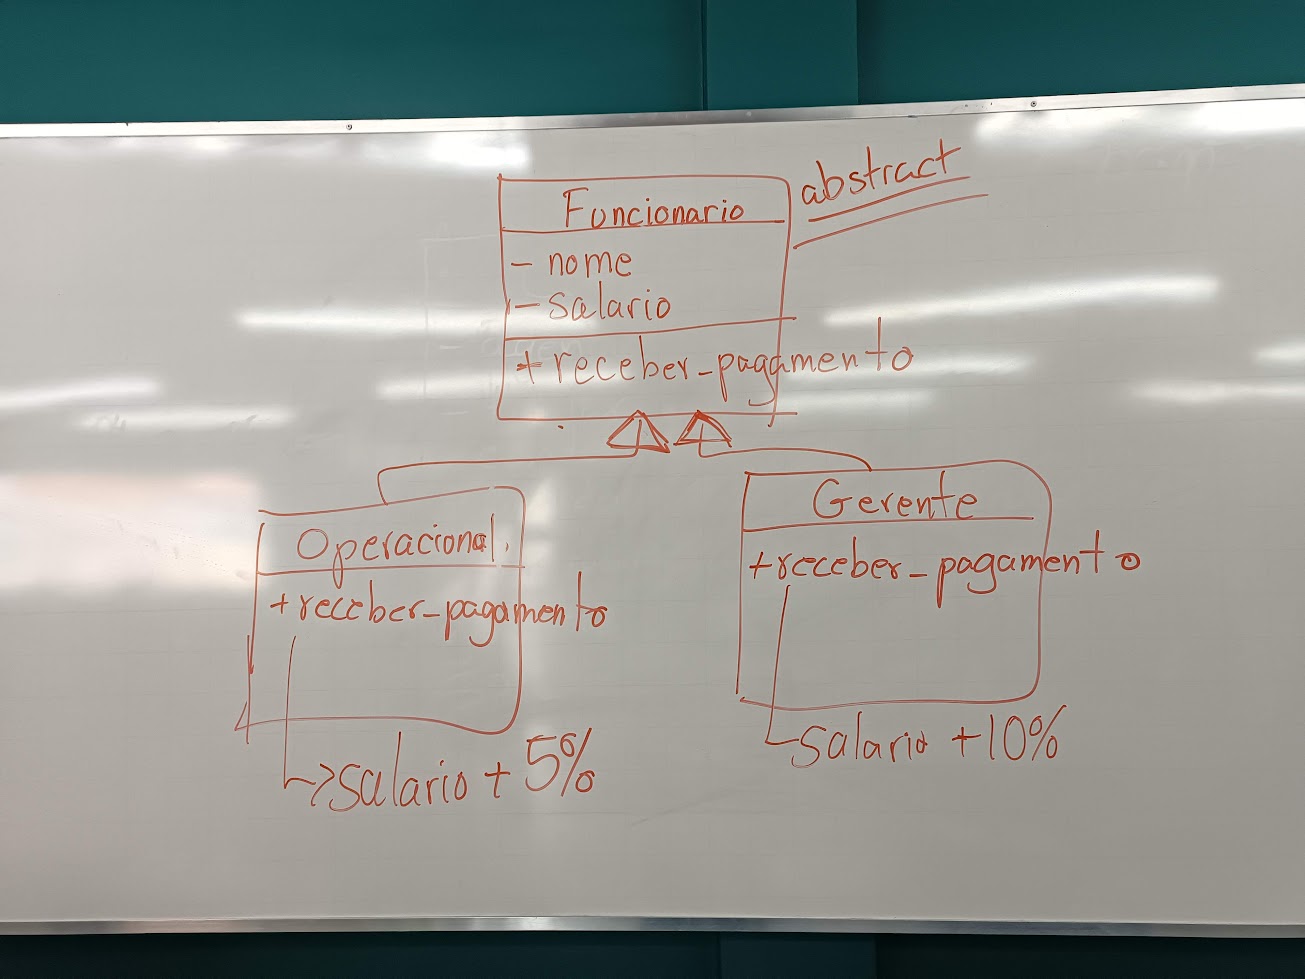 abstract
Funcionario
- nome
- salario
+ receber_pagamento
Operacional
+ receber_pagamento
salario + 5%
Gerente
+ receber_pagamento
salario + 10%